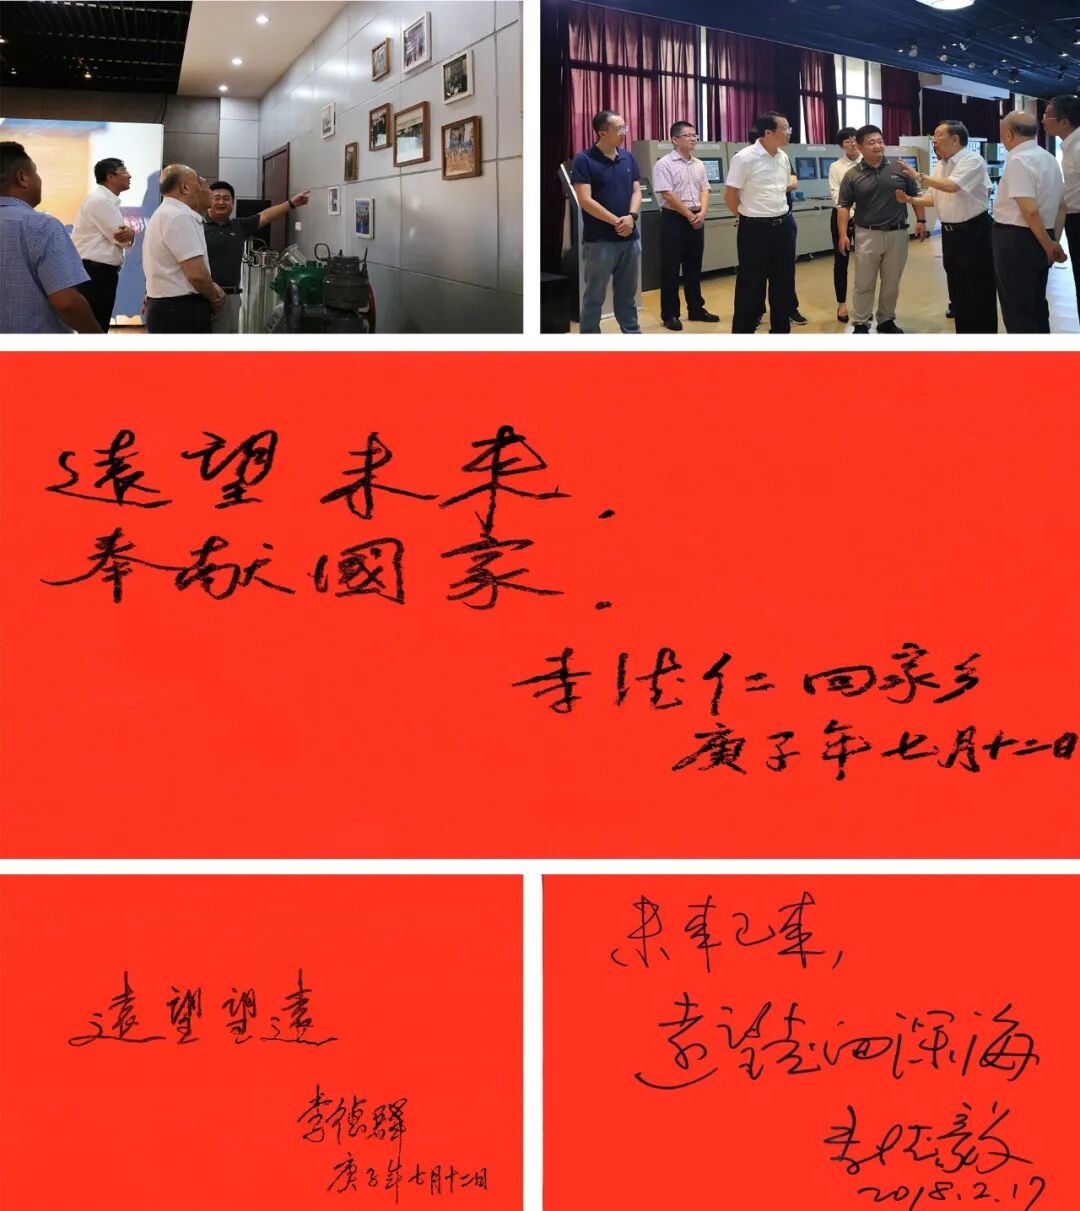 遠望未来.
奉献國家.
李德仁回家乡
庚子年七月十二日
遠望望遠
李德群
庚子年七月十二日
未来已来,
遠望走向深海
李德毅
2018.2.17